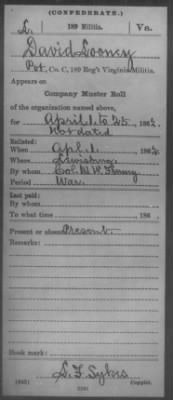 (CONFEDERATE.)
L. 189 Militia. Va.
David Looney
Pvt., Co. C, 189 Reg't Virginia Militia.
Appears on
Company Muster Roll
of the organization named above,
for April 1 to 25, 1862.
Not dated
Enlisted:
When Apl. 1, 1862.
Where Lewisburg.
By whom Col. W. W.
Period War.
Last paid:
By whom
To what time , 186 .
Present or absent Present.
Remarks:
Book mark:
S. F. Sykes
(642) Copyist.